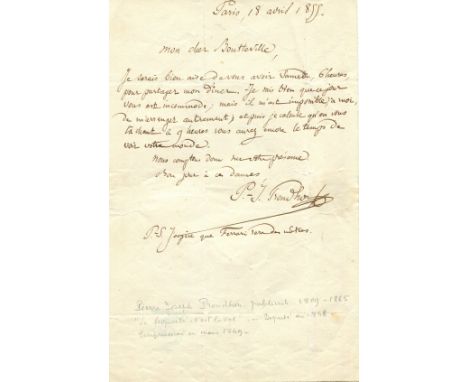 Paris, 18 avril 1855.
mon cher Boutteville,
Je serais bien aise de vous avoir Samedi, 6 heures
pour partager mon dîner. Je sais bien que ce jour
vous est incommode, mais il m'est impossible à moi,
de m'arranger autrement; et puis je calcule qu'en vous
lâchant à 9 heures vous aurez encore le temps de
voir votre monde.
Nous comptons donc sur votre présence
Bon jour à ces dames
P.-J. Proudhon
P.-S. J'espère que Ferrari sera des nôtres.
Pierre Joseph Proudhon, publiciste 1809-1865
"La propriété c'est le vol" en 1848
en mars 1849-